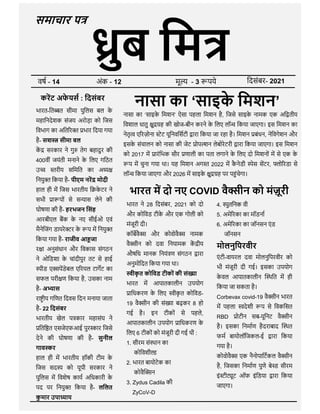 समाचार पत्र
ध्रुब मित्र
वर्ष - 14
अंक - 12
मूल्य - 3 रूपये
दिसंबर- 2021
करेंट अफेयर्स : दिसंबर
भारत-तिब्बत सीमा पुलिस बल के
महानिदेशक संजय अरोड़ा को जिस
विभाग का अतिरिक्त प्रभार दिया गया
है- सशस्त्र सीमा बल
केंद्र सरकार ने गुरु तेग बहादुर की
400वीं जयंती मनाने के लिए गठित
उच्च स्तरीय समिति का अध्यक्ष
नियुक्त किया है- पीएम नरेंद्र मोदी
हाल ही में जिस भारतीय क्रिकेटर ने
सभी प्रारूपों से सन्यास लेने की
घोषणा की है- हरभजन सिंह
आरबीएल बैंक के नए सीईओ एवं
मैनेजिंग डायरेक्टर के रूप में नियुक्त
किया गया है- राजीव आहूजा
रक्षा अनुसंधान और विकास संगठन
ने ओडिशा के चांदीपुर तट से हाई
स्पीड एक्सपेंडेबल एरियल टार्गेट का
सफल परीक्षण किया है, उसका नाम
है- अभ्यास
राष्ट्रीय गणित दिवस दिन मनाया जाता
है- 22 दिसंबर
भारतीय खेल पत्रकार महासंघ ने
प्रतिष्ठित एसजेएफआई पुरस्कार जिसे
देने की घोषणा की है- सुनील
गावस्कर
हाल ही में भारतीय हॉकी टीम के
जिस सदस्य को यूपी सरकार ने
पुलिस में विशेष कार्य अधिकारी के
पद पर नियुक्त किया है- ललित
कुमार उपाध्याय
नासा का ‘साइके मिशन’
नासा का ‘साइके मिशन’ ऐसा पहला मिशन है, जिसे साइके नामक एक अद्वितीय
विशाल धातु क्षुद्रग्रह की खोज-बीन करने के लिए लॉन्च किया जाएगा। इस मिशन का
नेतृत्व एरिज़ोना स्टेट यूनिवर्सिटी द्वारा किया जा रहा है। मिशन प्रबंधन, नेविगेशन और
इसके संचालन को नासा की जेट प्रोपल्शन लेबोरेटरी द्वारा किया जाएगा। इस मिशन
को 2017 में प्रारंभिक सौर प्रणाली का पता लगाने के लिए दो मिशनों में से एक के
रूप में चुना गया था। यह मिशन अगस्त 2022 में कैनेडी स्पेस सेंटर, फ्लोरिडा से
लॉन्च किया जाएगा और 2026 में साइके क्षुद्रग्रह पर पहुंचेगा।
भारत में दो नए COVID वैक्सीन को मंजूरी
भारत ने 28 दिसंबर, 2021 को दो
और कोविड टीके और एक गोली को
मंजूरी दी।
कॉर्बेवैक्स और कोवोवैक्स नामक
वैक्सीन को दवा नियामक केंद्रीय
औषधि मानक नियंत्रण संगठन द्वारा
अनुमोदित किया गया था।
स्वीकृत कोविड टीकों की संख्या
भारत में आपातकालीन उपयोग
प्राधिकरण के लिए स्वीकृत कोविड-
19 वैक्सीन की संख्या बढ़कर 8 हो
गई है। इन टीकों से पहले,
आपातकालीन उपयोग प्राधिकरण के
लिए 6 टीकों को मंजूरी दी गई थी :
1. सीरम संस्थान का
कोविशील्ड
2. भारत बायोटेक का
कोवैक्सिन
3. Zydus Cadila की
ZyCoV-D
4. स्पुतनिक वी
5. अमेरिका का मॉडर्ना
6. अमेरिका का जॉनसन एंड
जॉनसन
मोलनुपिरवीर
एंटी-वायरल दवा मोलनुपिरवीर को
भी मंजूरी दी गई। इसका उपयोग
केवल आपातकालीन स्थिति में ही
किया जा सकता है।
Corbevax covid-19 वैक्सीन भारत
में पहला स्वदेशी रूप से विकसित
RBD प्रोटीन सब-यूनिट वैक्सीन
है। इसका निर्माण हैदराबाद स्थित
फर्म बायोलॉजिकल-ई द्वारा किया
गया है।
कोवोवैक्स एक नैनोपार्टिकल वैक्सीन
है, जिसका निर्माण पुणे बेस्ड सीरम
इंस्टीट्यूट ऑफ इंडिया द्वारा किया
जाएगा।